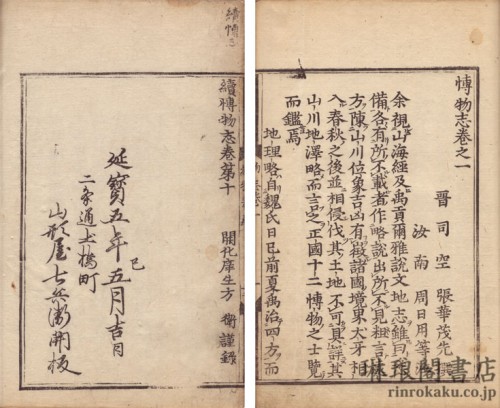 博物志卷之一
晉司空 張華茂先
汝南 周日用等
余視山海經及禹貢爾雅說文地志雖曰悉
備各有所不載者作略說出所不見粗言
方陳山川位象吉凶有徵諸國境東犬牙相
入春秋之後並相侵伐其土地不可具詳其
山川地澤略而言之正國十二博物之士覽
而鑑焉
地理略自魏氏曰已前夏禹治四方而
續博物志卷第十 閒化庠生方 衡謹錄
延寳五年巳五月吉日
二条通土橋町
山形屋七兵衛開板
琳琅閣書店
www.rinrokaku.co.jp